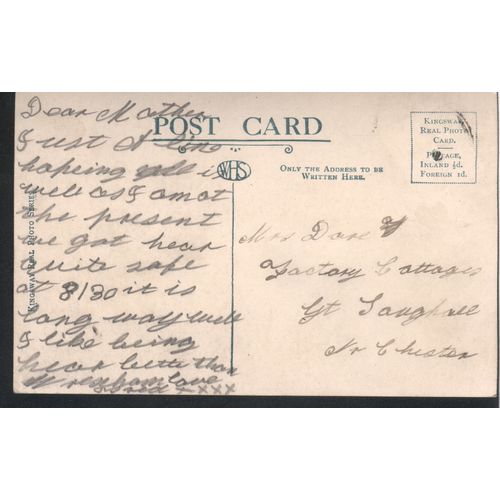 Dear Mother
Just A line
hopeing is
well as I am at
the present
we got hear
quite safe
at 8/30 it is
long way well
I like being
hear bette than
Wrexham love
xxxx
KINGSWAY REAL PHOTO SERIES
POST CARD
WHS
ONLY THE ADDRESS TO BE
WRITTEN HERE.
KINGSWAY
REAL PHOTO
CARD.
POSTAGE,
INLAND ½d.
FOREIGN 1d.
Mrs Dare
Factory Cottages
Gt Saughall
Nr Chester